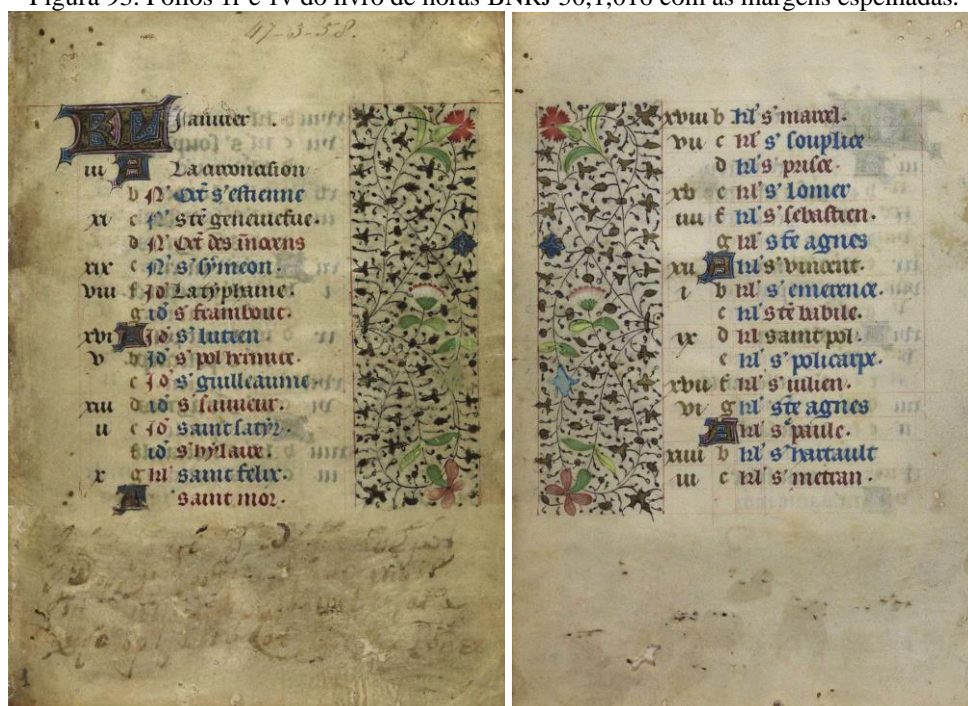 Figura 93. Fólios 1r e 1v do livro de horas BNRJ 50,1,016 com as margens espelhadas.
47-3-58.
KL Januier.
iii A La circoncision
b N' Oct s' estienne
xi c N' ste geneuiefue.
d N' Oct des innocens
xix e N' s' symeon.
viii f Id La typhaine.
g id s' frambout.
xvi A Id s' lucien
v b Id s' pol
c Id s' guilleaume.
xiii d id s' sauueur.
ii e id saint satyr.
f id s' hylaire.
x g kl' saint felix.
A saint mor.
1
xviii b kl' s' marcel.
vii c kl' s' souplice
d kl' s' prisce.
xv e kl' s' lomer
iiii f kl' s' sebastien.
g kl' ste agnes
xii A kl' s' vincent.
i b kl' s' emerence.
c kl' ste babile.
ix d kl' saint pol.
e kl' s' policarpe.
xvii f kl' s' iulien.
vi g kl' ste agnes
A kl' s' paule.
xiiii b kl' s'
iii c kl' s' metran.